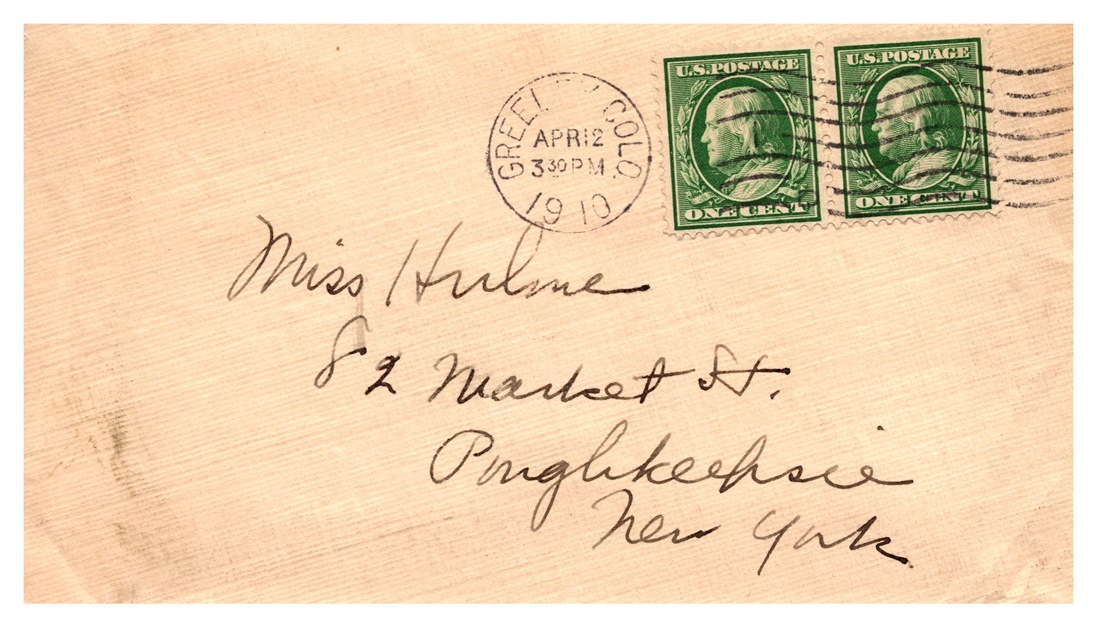 U.S.POSTAGE U.S.POSTAGE
ONE CENT ONE CENT
COLO.
APR 12
3 30 PM
1910
Miss Hulme
82 Market St.
Poughkeepsie
New York